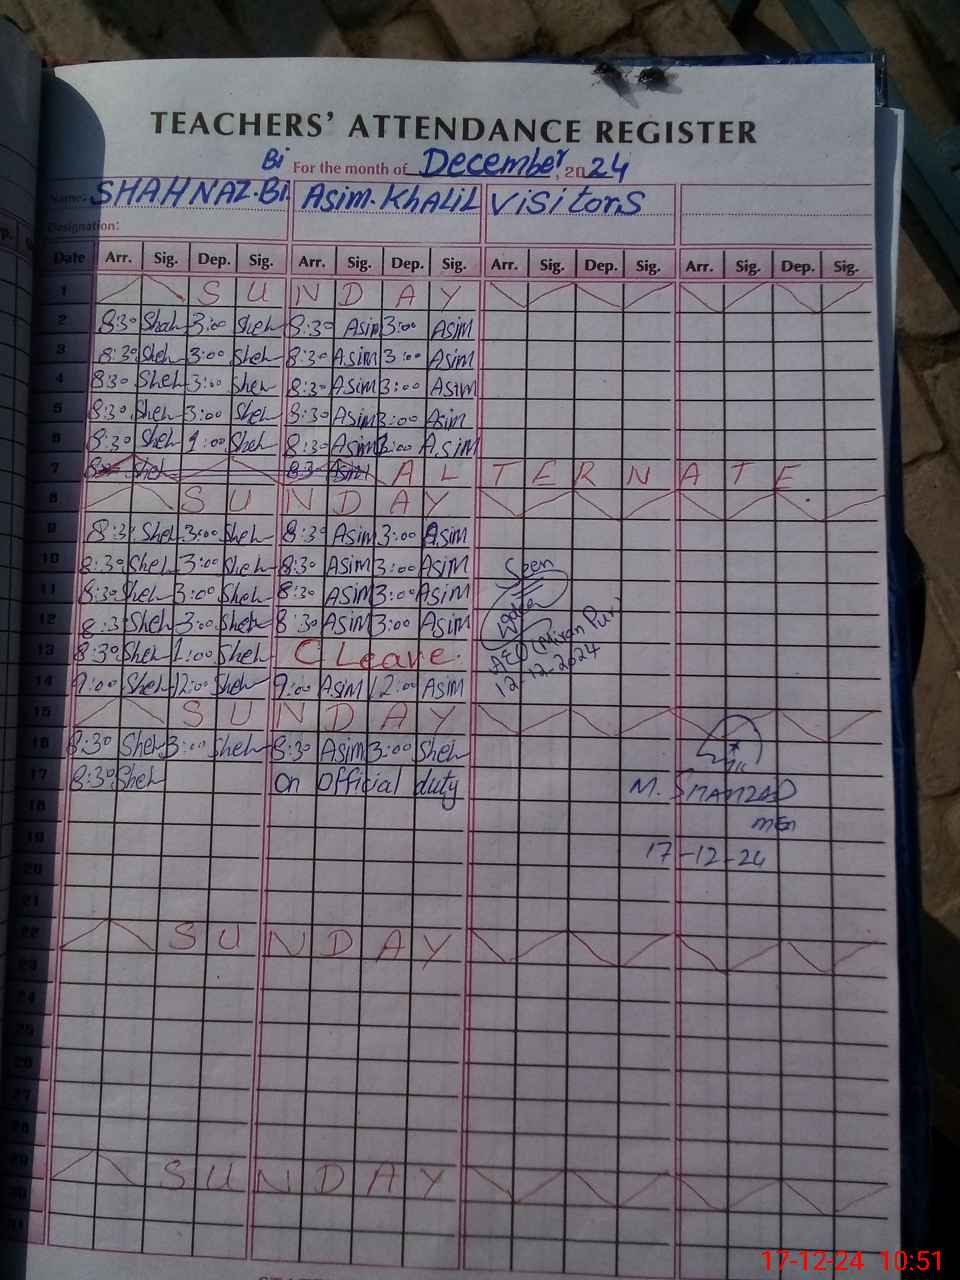 TEACHERS' ATTENDANCE REGISTER
Bi For the month of December, 2024
Name: SHAHNAZ.Bi Asim.KHALIL Visitors
Designation:
Date Arr. Sig. Dep. Sig. Arr. Sig. Dep. Sig. Arr. Sig. Dep. Sig. Arr. Sig. Dep. Sig.
1 SUNDAY
2 8:30 Sheh 3:00 Sheh 8:30 Asim 3:00 Asim
3 8:30 Sheh 3:00 Sheh 8:30 Asim 3:00 Asim
4 8:30 Sheh 3:00 Sheh 8:30 Asim 3:00 Asim
5 8:30 Sheh 3:00 Sheh 8:30 Asim 3:00 Asim
6 8:30 Sheh 1:00 Sheh 8:30 Asim Asim
7 Sheh 8:30 Asim ALTERNATE
8 SUNDAY
9 8:30 Sheh 3:00 Sheh 8:30 Asim 3:00 Asim
10 8:30 Sheh 3:00 Sheh 8:30 Asim 3:00 Asim
11 8:30 Sheh 3:00 Sheh 8:30 Asim 3:00 Asim
12 8:30 Sheh 3:00 Sheh 8:30 Asim 3:00 Asim
13 8:30 Sheh 1:00 Sheh C Leave
14 9:00 Sheh 12:00 Sheh 9:00 Asim 12:00 Asim
15 SUNDAY
16 8:30 Sheh 3:00 Sheh 8:30 Asim 3:00 Sheh
17 8:30 Sheh on official duty
18
19
20
21
22 SUNDAY
23
24
25
26
27
28
29 SUNDAY
30
31
Seen
AEO (Miran Pur)
12-12-2024
M. SHAHZAD
MEA
17-12-24
17-12-24 10:51